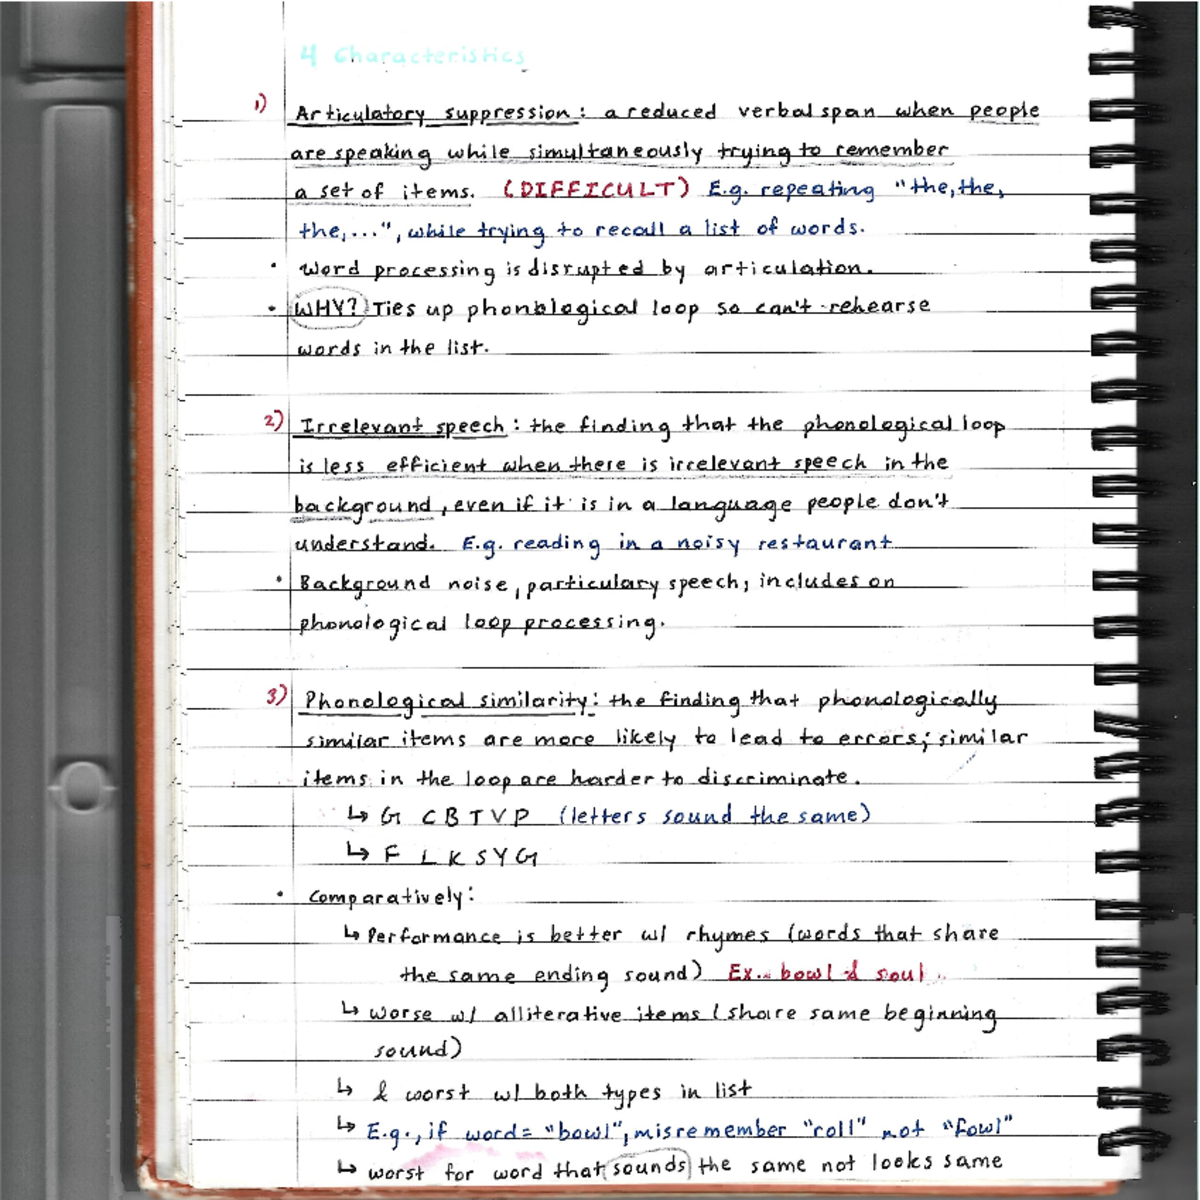 4 Characteristics
1) Articulatory suppression: a reduced verbal span when people
are speaking while simultaneously trying to remember
a set of items. (DIFFICULT) E.g. repeating "the, the,
the,...", while trying to recall a list of words.
• Word processing is disrupted by articulation.
• WHY? Ties up phonological loop so can't rehearse
words in the list.
2) Irrelevant speech: the finding that the phonological loop
is less efficient when there is irrelevant speech in the
background, even if it is in a language people don't
understand. E.g. reading in a noisy restaurant
• Background noise, particulary speech, includes on
phonological loop processing.
3) Phonological similarity: the finding that phonologically
similar items are more likely to lead to errors; similar
items in the loop are harder to discriminate.
↳ G C B T V P (letters sound the same)
↳ F L K S Y G
• Comparatively:
↳ Performance is better w/ rhymes (words that share
the same ending sound) Ex. bowl & soul
↳ worse w/ alliterative items (share same beginning
sound)
↳ & worst w/ both types in list
↳ E.g., if word = "bowl", misremember "roll" not "fowl"
↳ worst for word that sounds the same not looks same